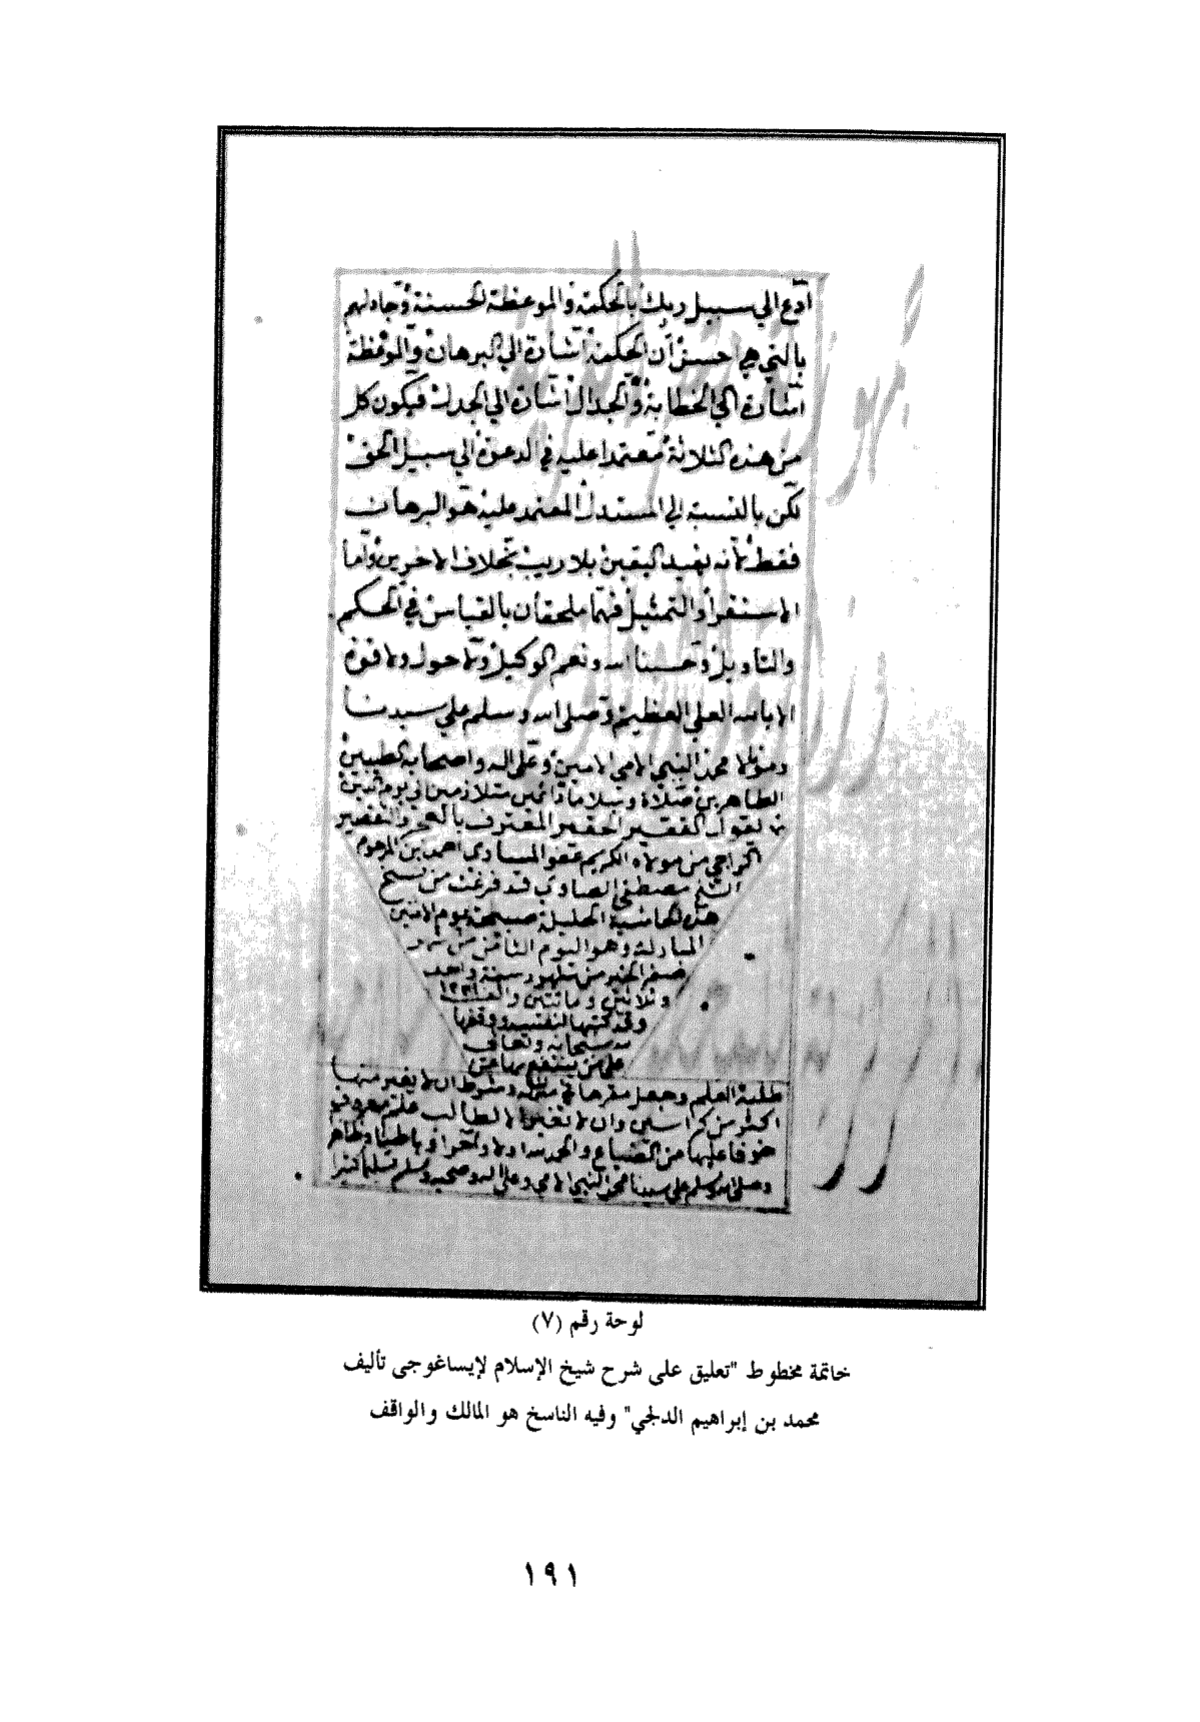 أدع الي سبيل ربك بالحكمة والموعظة الحسنة وجادلهم
بالتي هي احسن أن الحكمة اشارة الي البرهان والموعظة
اشارة الي الخطابة والجدال اشارة الي الجدل فيكون كل
من هذه الثلاثة معتمدا عليه في الدعوة الي سبيل الحق
لكن بالنسبة الي المستدل المعتمد عليه هو البرهان
فقط لانه يفيد اليقين بلا ريب بخلاف الاخرين واما
الاستقرأ والتمثيل فهما ملحقان بالقياس في الحكم
والتأويل وحسبنا الله ونعم الوكيل ولا حول ولا قوة
الا بالله العلي العظيم وصلي الله وسلم علي سيدنا
ومولانا محمد النبي الامي الامين وعلي اله واصحابه الطيبين
الطاهرين صلاة وسلاما دائمين متلازمين الي يوم الدين
يقول الفقير الحقير المعترف بالعجز والتقصير
الراجي من مولاه الكريم عفو المساوي احمد بن المرحوم
الشيخ مصطفي الصاوي قد فرغت من نسخ
هذه الحاشية الجليلة صبيحة يوم الاثنين
المبارك وهو اليوم الثامن من شهر
صفر الخير من شهور سنة واحد
وثلاثين ومائتين والف ١٢٣١
وقد كتبتها لنفسي ووقفها
لله سبحانه وتعالي
علي من ينتفع بها من
طلبة العلم وجعل مقرها في منزله وشرط ان لا يغير منها
اكثر من كراسين وان لا تغير الا لطالب علم معروف
خوفا عليها من الضياع والحمد لله اولا واخرا وباطنا وظاهرا
وصلي الله وسلم علي سيدنا محمد النبي الامي وعلي اله وصحبه وسلم تسليما كثيرا
لوحة رقم (٧)
خاتمة مخطوط "تعليق على شرح شيخ الإسلام لإيساغوجى تأليف
محمد بن إبراهيم الدلجي" وفيه الناسخ هو المالك والواقف
١٩١